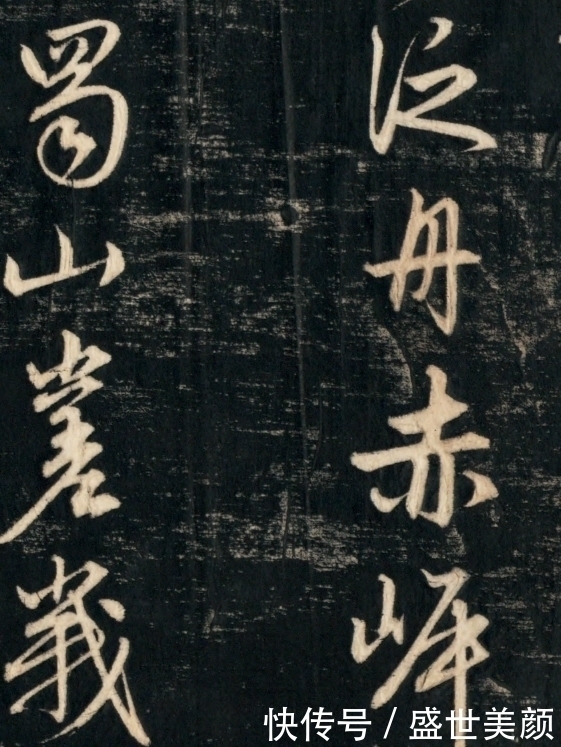 泛舟赤岸
蜀山嵳峩
快传号 / 盛世美颜